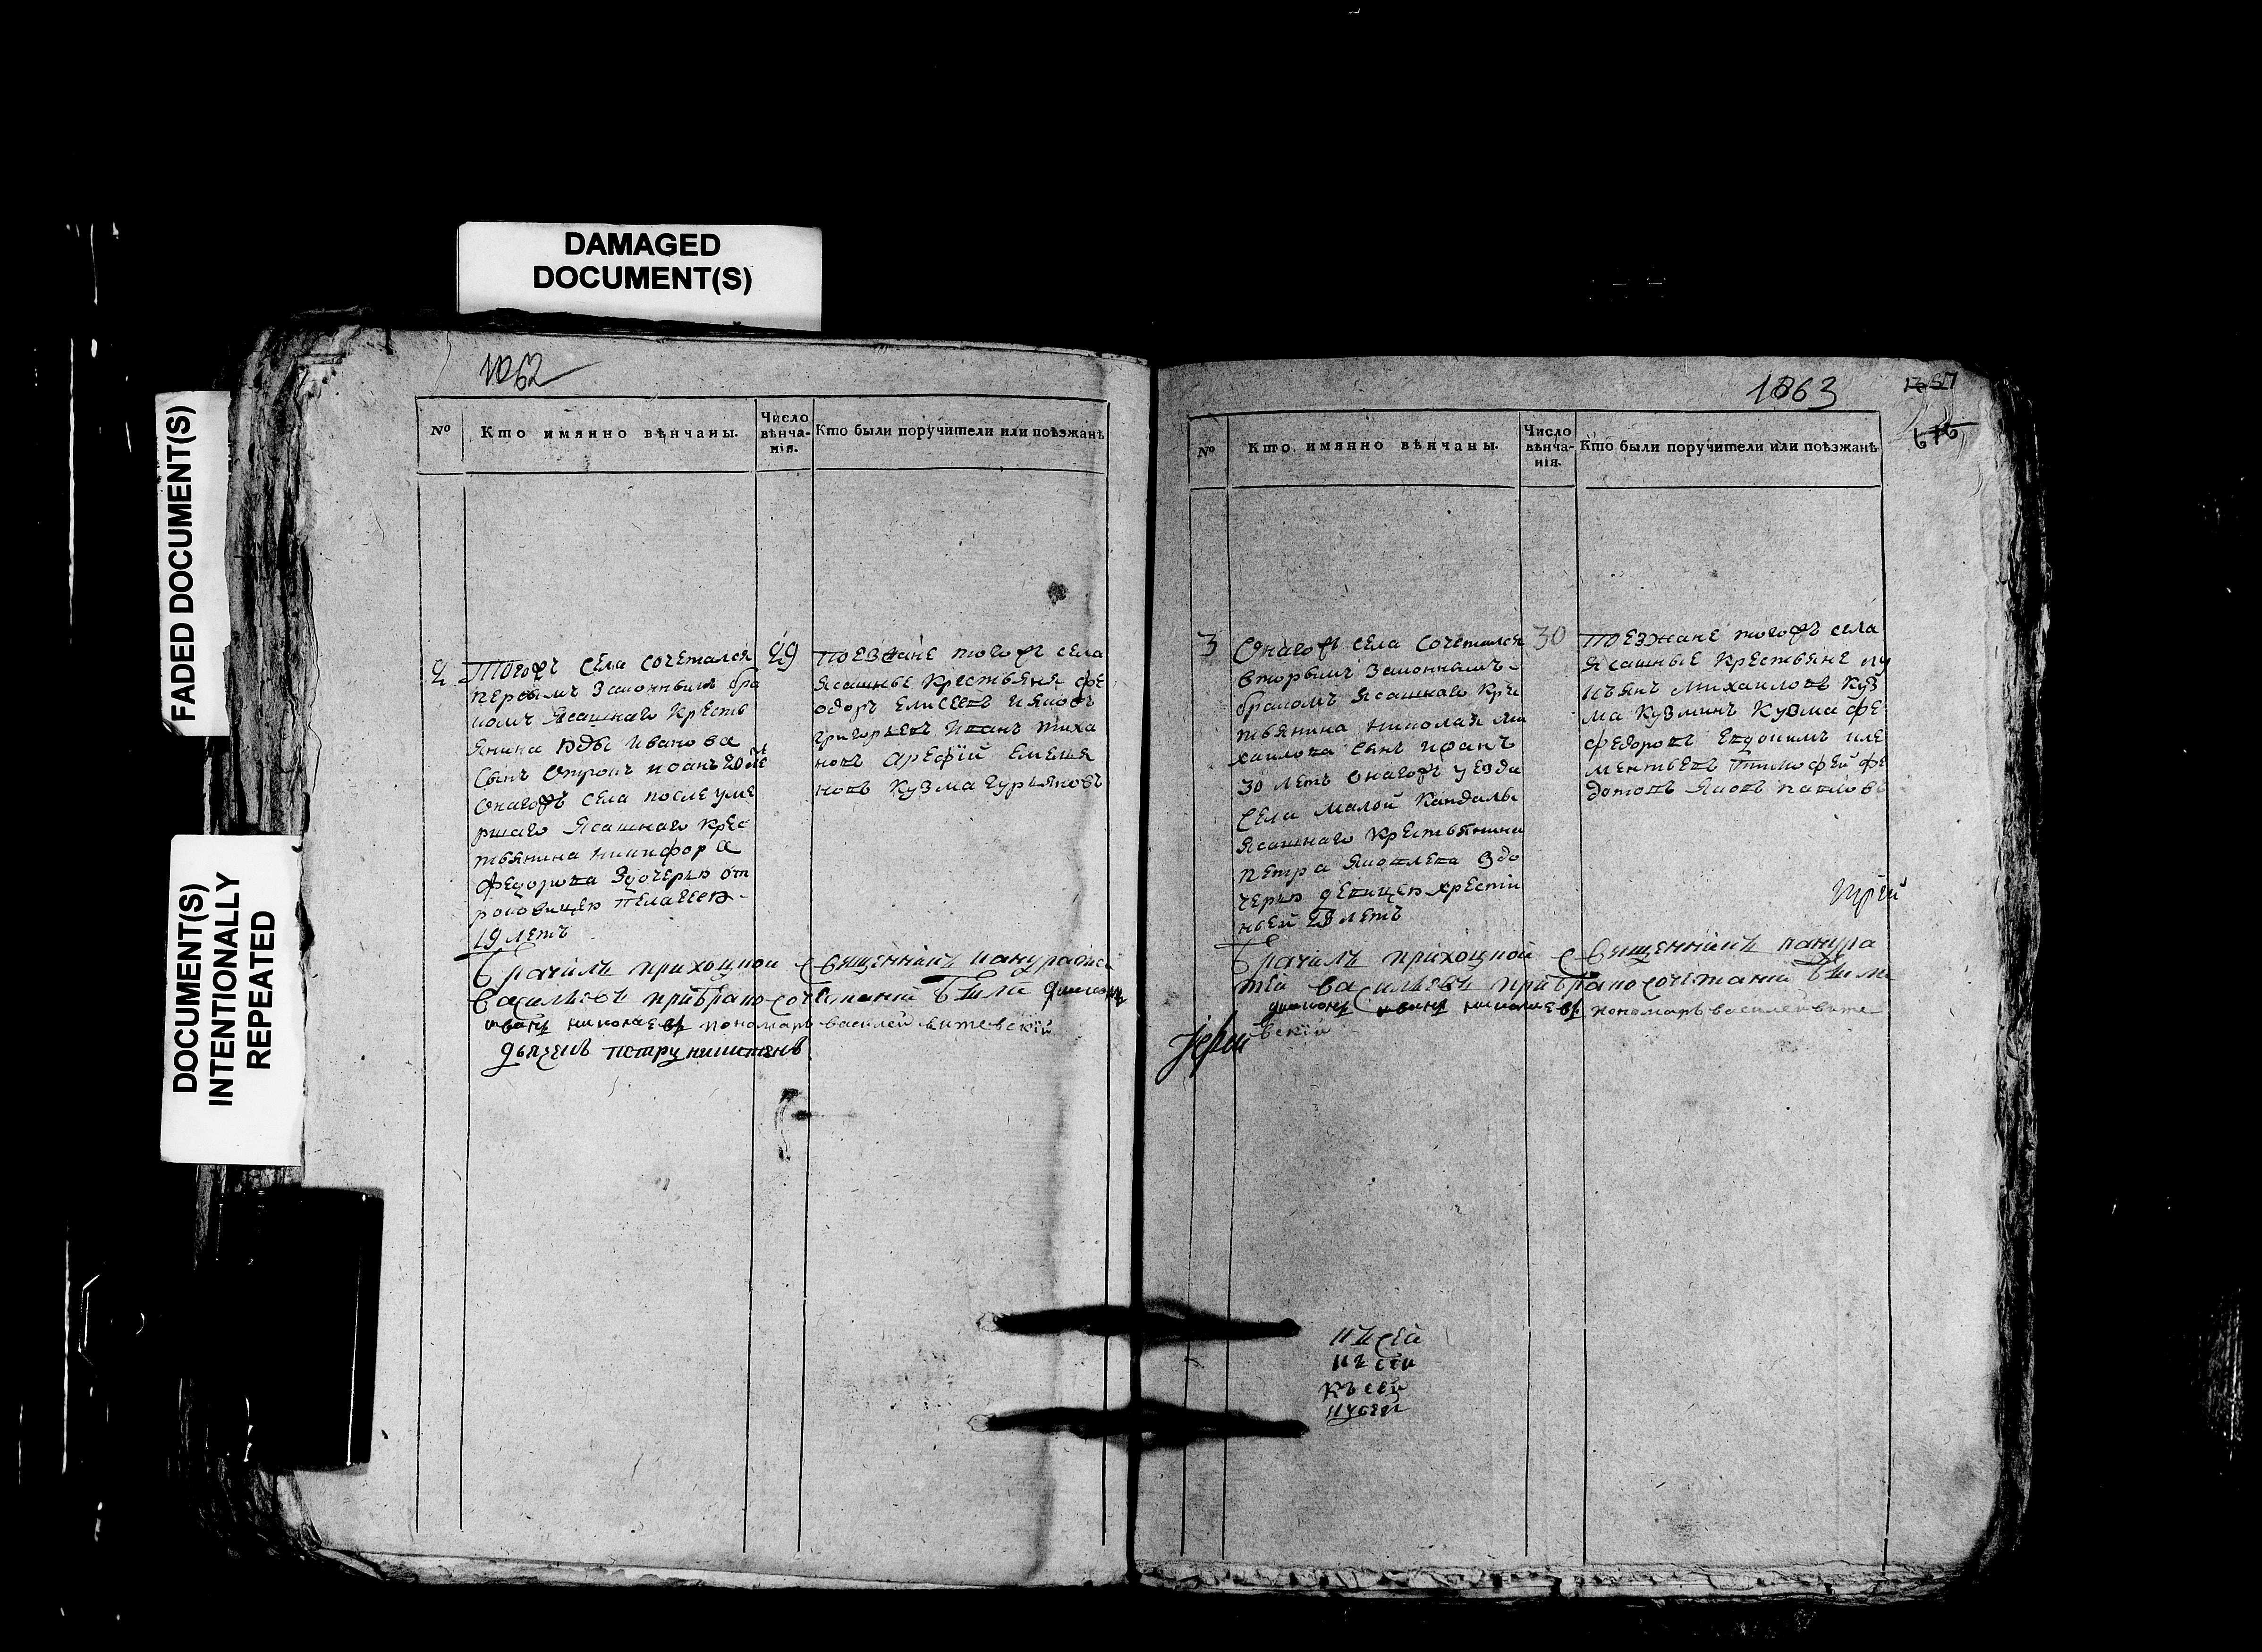 DAMAGED
DOCUMENT(S)
FADED DOCUMENT(S)
DOCUMENT(S)
INTENTIONALLY
REPEATED
1062
№
Кто имянно вѣнчаны.
Число
вѣнча-
нія.
Кто были поручители или поѣзжанѣ
2
Тогожъ села сочетался
первымъ законнымъ бра
комъ ясашнаго кресть
янина Иванова
сынъ отрокъ иоанъ 20 ле
Оногожъ села после уме
ршаго ясашнаго крес
тьянина никифора
федорова здочерью от
роковицею пелагеею
19 летъ
29
поезжане тогожъ села
ясашные крестьяня фе
одоръ елисеевъ ияковъ
григорьевъ иванъ тиха
новъ арефий емелья
новъ кузма гурьяновъ
Брачилъ приходной священникъ
васильевъ при бракосочетании были
ивану николаеву пономарь василей витевский
дьячекъ петръ никитинъ
1063
№
Кто имянно вѣнчаны.
Число
вѣнча-
нія.
Кто были поручители или поѣзжанѣ
3
Оногожъ села сочетался
вторымъ законнымъ
бракомъ ясашнаго кре
тьянина николая ми
хаилова сынъ иванъ
30 летъ оногожъ уезда
села малой кандалы
ясашнаго крестьянина
петра яковлева здо
черью девицею хрестин
ньей 28 летъ
30
поезжане тогожъ села
ясашные крестьяне лу
кьянъ михаиловъ куз
ма кузминъ кузма фе
федоровъ евдокимъ кле
ментьевъ тимофей фе
дотовъ яковъ павловъ
Иерей
Брачилъ приходной священникъ
васильевъ при бракосочетании были
ивану николаеву пономарь василей вите
вский
Иерей
къ сей
къ сей
къ сей